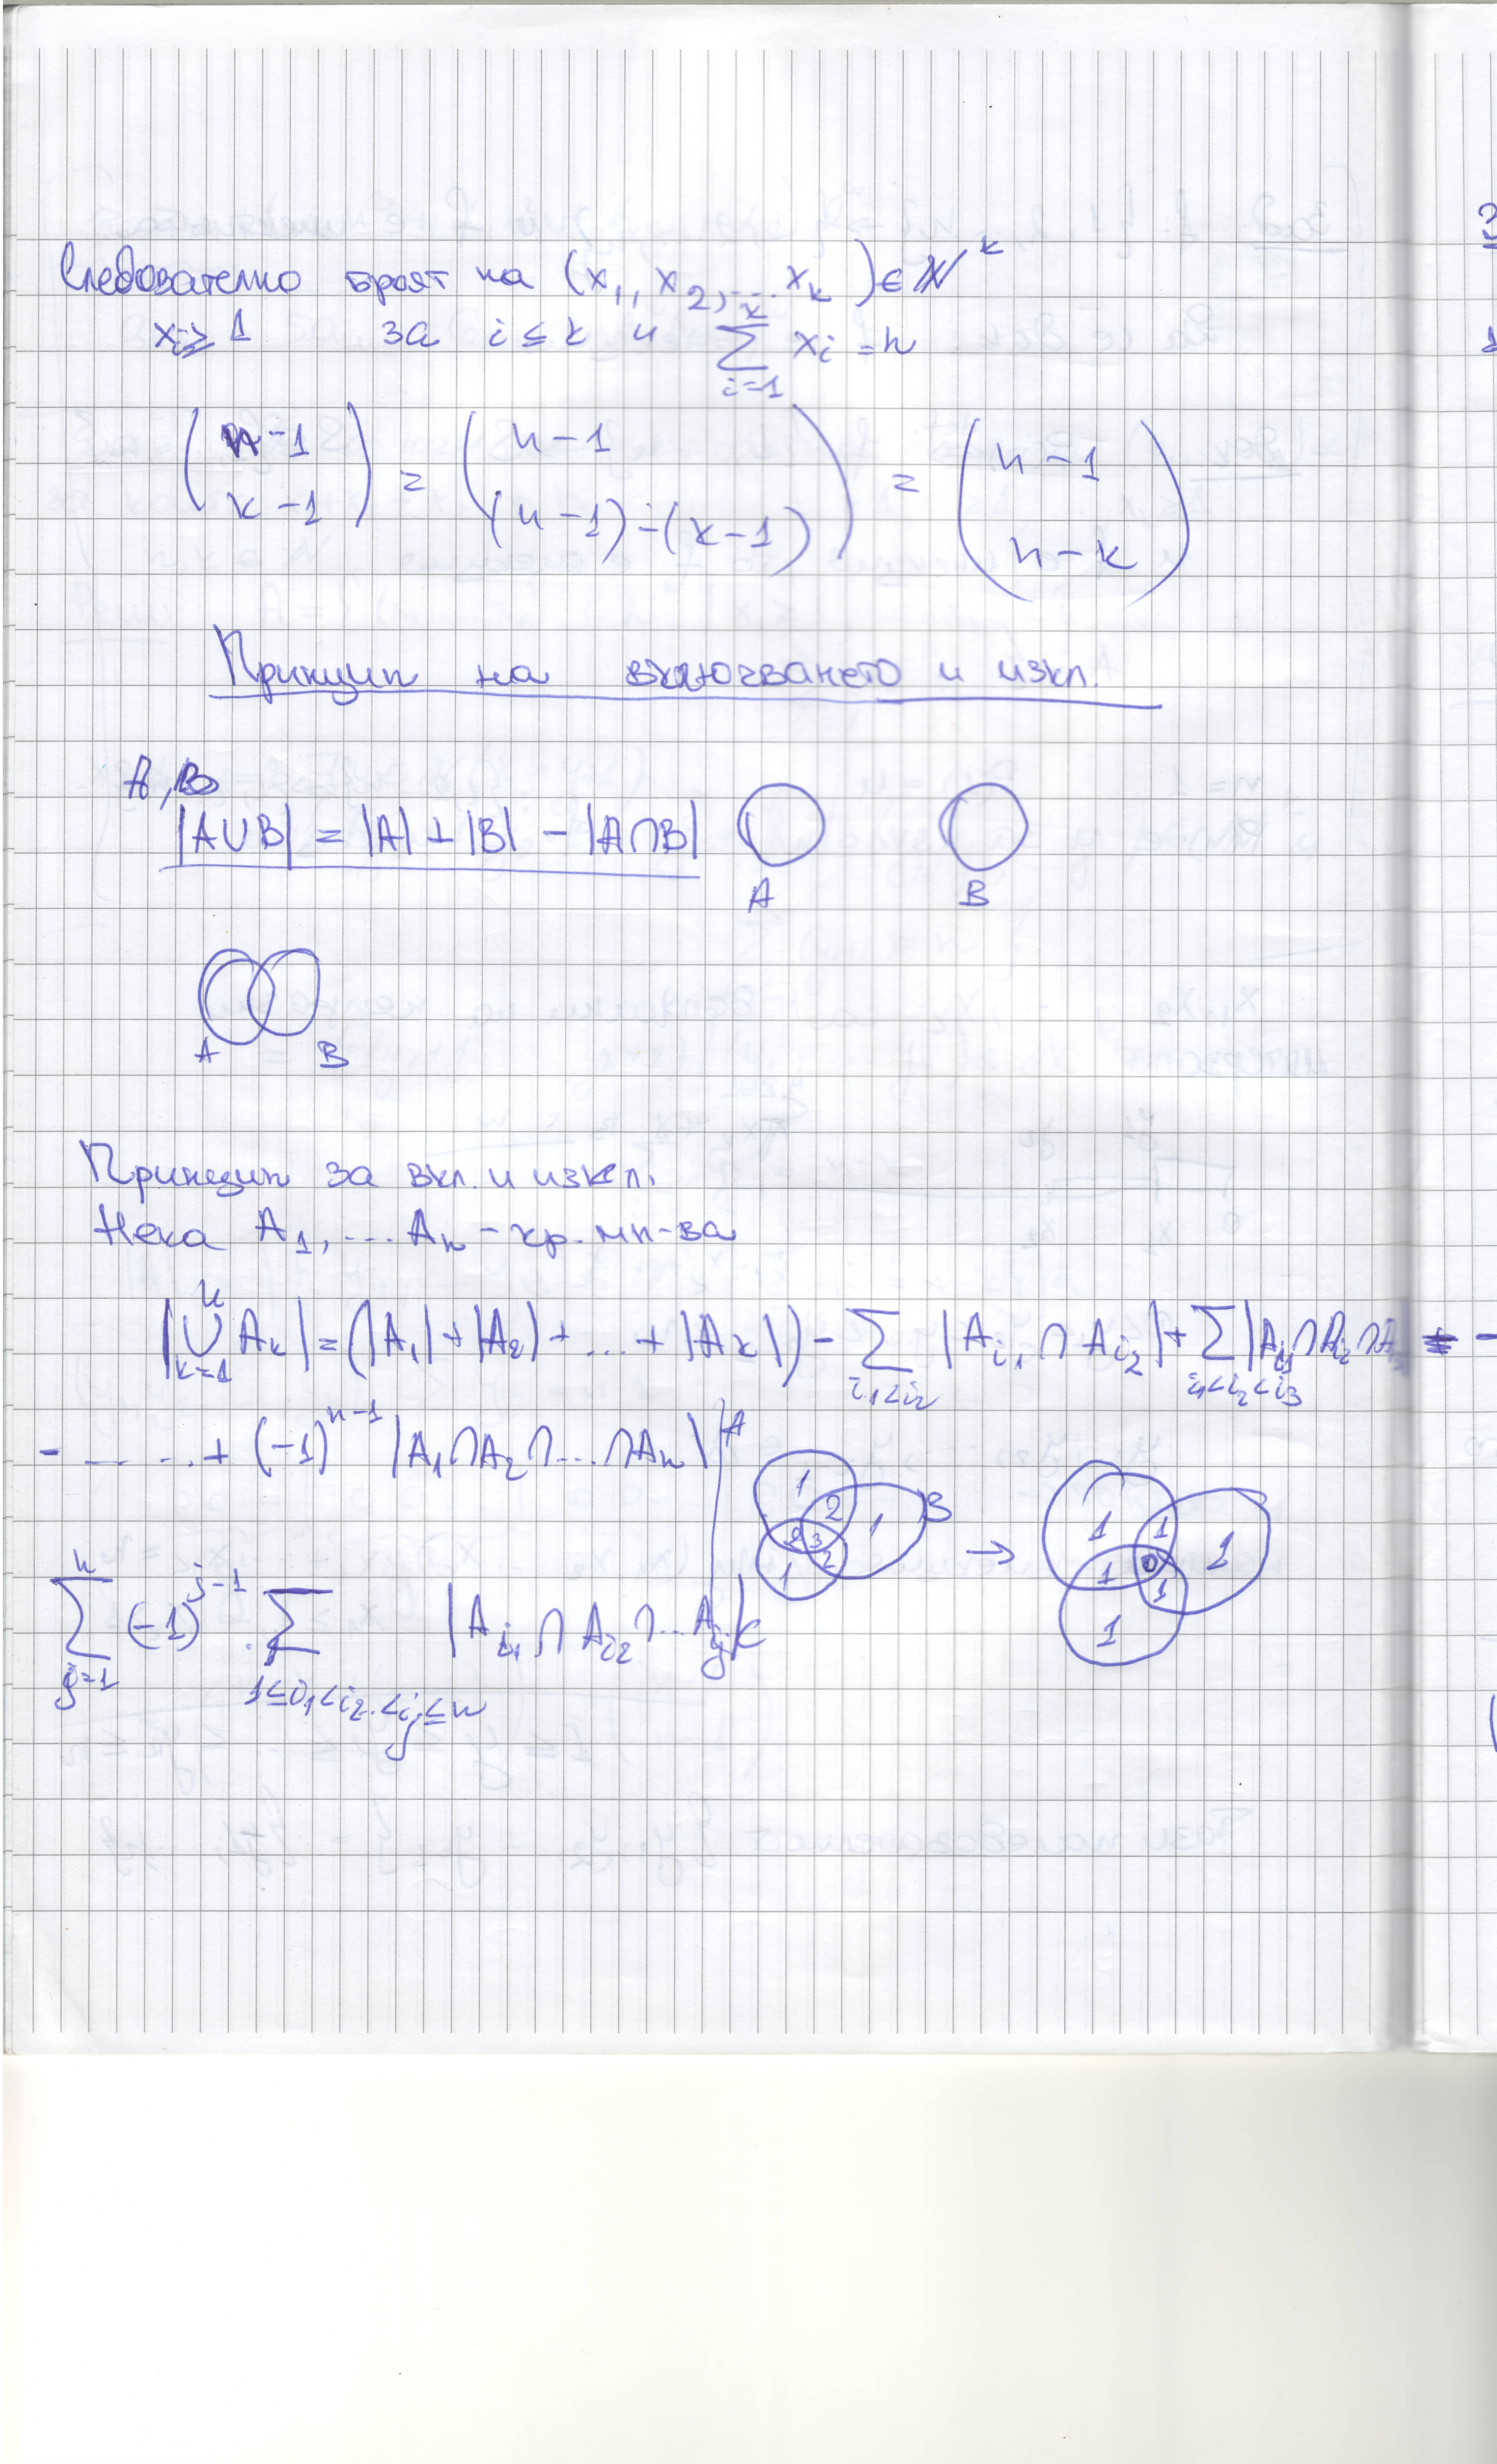 Следователно броят на (x₁, x₂, ... xₖ) ∈ ℕᵏ
xᵢ ≥ 1 за i ≤ k и ∑_{i=1}^{k} xᵢ = n
(n-1 / k-1) = (n-1 / (n-1)-(k-1)) = (n-1 / n-k)
Принцип на включването и изкл.
A, B
|A∪B| = |A| + |B| - |A∩B|
A B
A B
Принцип за вкл. и изкл.
Нека A₁, ... Aₙ - кр. мн-ва
|⋃_{k=1}^{n} Aₖ| = (|A₁| + |A₂| + ... + |Aₖ|) - ∑_{i₁<i₂} |A_{i₁} ∩ A_{i₂}| + ∑_{i₁<i₂<i₃} |A_{i₁} ∩ A_{i₂} ∩ A_{i₃}| -
- ... + (-1)^{n-1} |A₁∩A₂∩...∩Aₙ|
A 1 2 1 B 2 3 2 1 → 1 1 1 1 0 1 1
∑_{j=1}^{n} (-1)^{j-1} . ∑_{1≤i₁<i₂..<i_j≤n} |A_{i₁} ∩ A_{i₂} ∩ ... A_{i_j}|
C